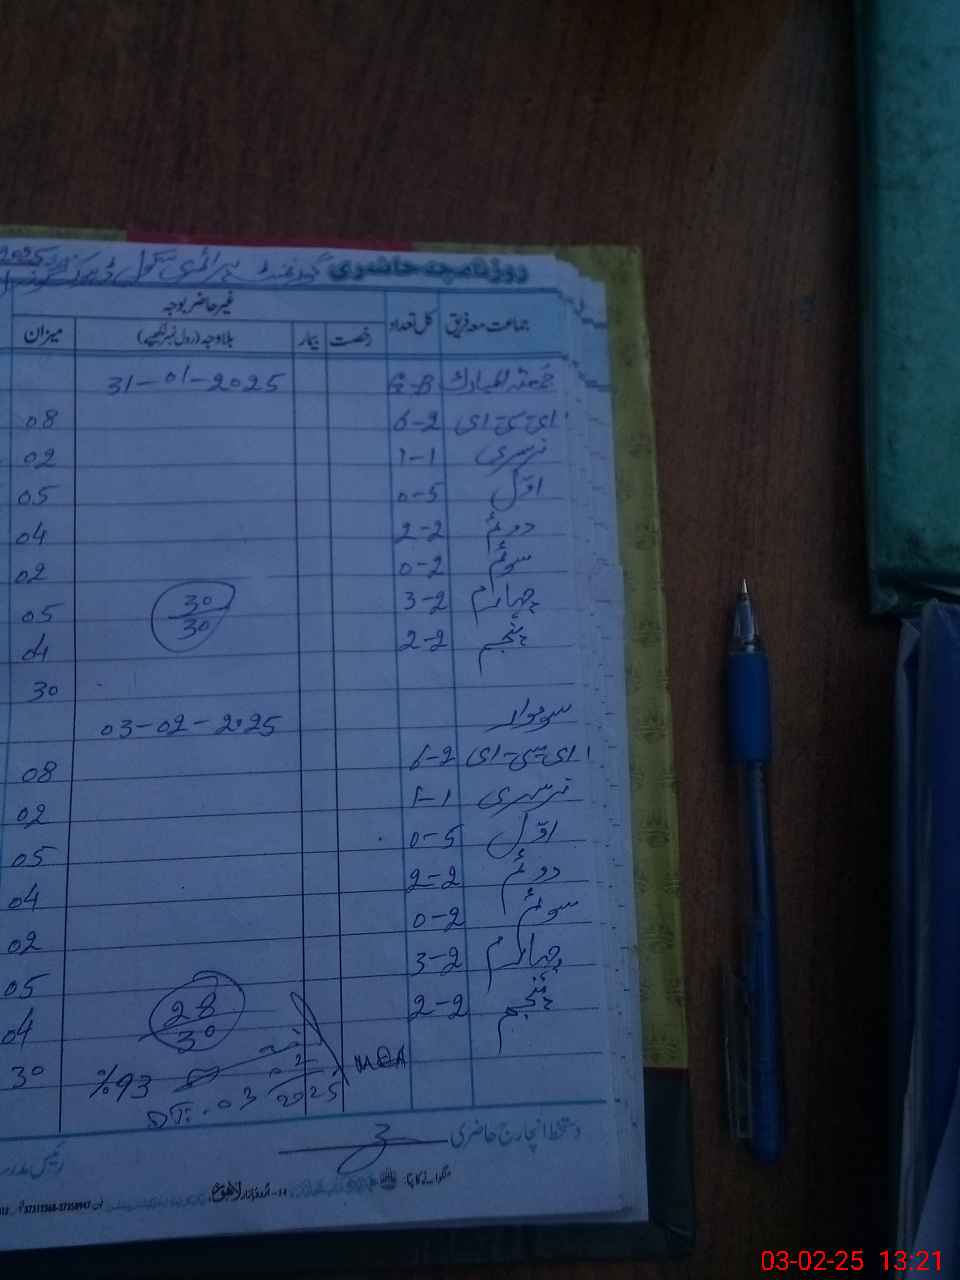 روزنامچہ حاضری گورنمنٹ پرائمری سکول 2025
جماعت معہ فریق کل تعداد غیر حاضر بوجہ
رخصت بیمار بلاوجہ (رول نمبر لکھیے) میزان
جمعۃ المبارک G-B 31-01-2025
ای-سی-ای 6-2 08
نرسری 1-1 02
اوّل 0-5 05
دوئم 2-2 04
سوئم 0-2 02
چہارم 3-2 30/30 05
پنجم 2-2 04
30
سوموار 03-02-2025
ای-سی-ای 6-2 08
نرسری 1-1 02
اوّل 0-5 05
دوئم 2-2 04
سوئم 0-2 02
چہارم 3-2 05
پنجم 2-2 28/30 04
MEA %93 30
DT:. 03 02 2025
دستخط انچارج حاضری
رئیس مدرسہ
لاہور
03-02-25 13:21